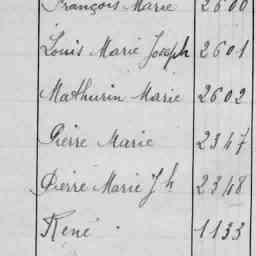 François Marie 2600
Louis Marie Joseph 2601
Mathurin Marie 2602
Pierre Marie 2347
Pierre Marie Jh 2348
René 1133